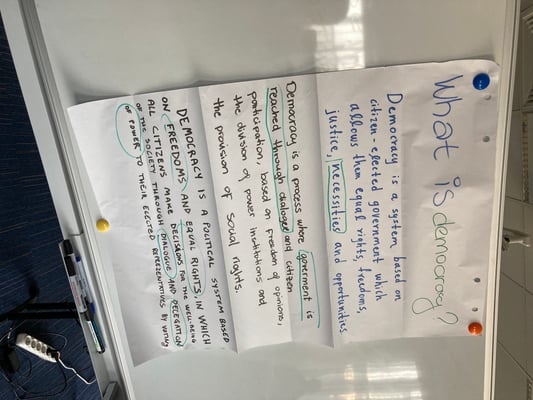 What is democracy?
Democracy is a system based on
citizen-elected government which
allows them equal rights, freedoms,
justice, necessities and opportunities.
Democracy is a process where agreement is
reached through dialogue and citizen
participation, based on freedom of opinions,
the division of power institutions and
the provision of social rights.
DEMOCRACY IS A POLITICAL SYSTEM BASED
ON FREEDOMS AND EQUAL RIGHTS IN WHICH
ALL CITIZENS MAKE DECISIONS FOR THE WELL-BEING
OF THE SOCIETY THROUGH DIALOGUE AND DELEGATION
OF POWER TO THEIR ELECTED REPRESENTATIVES BY VOTING